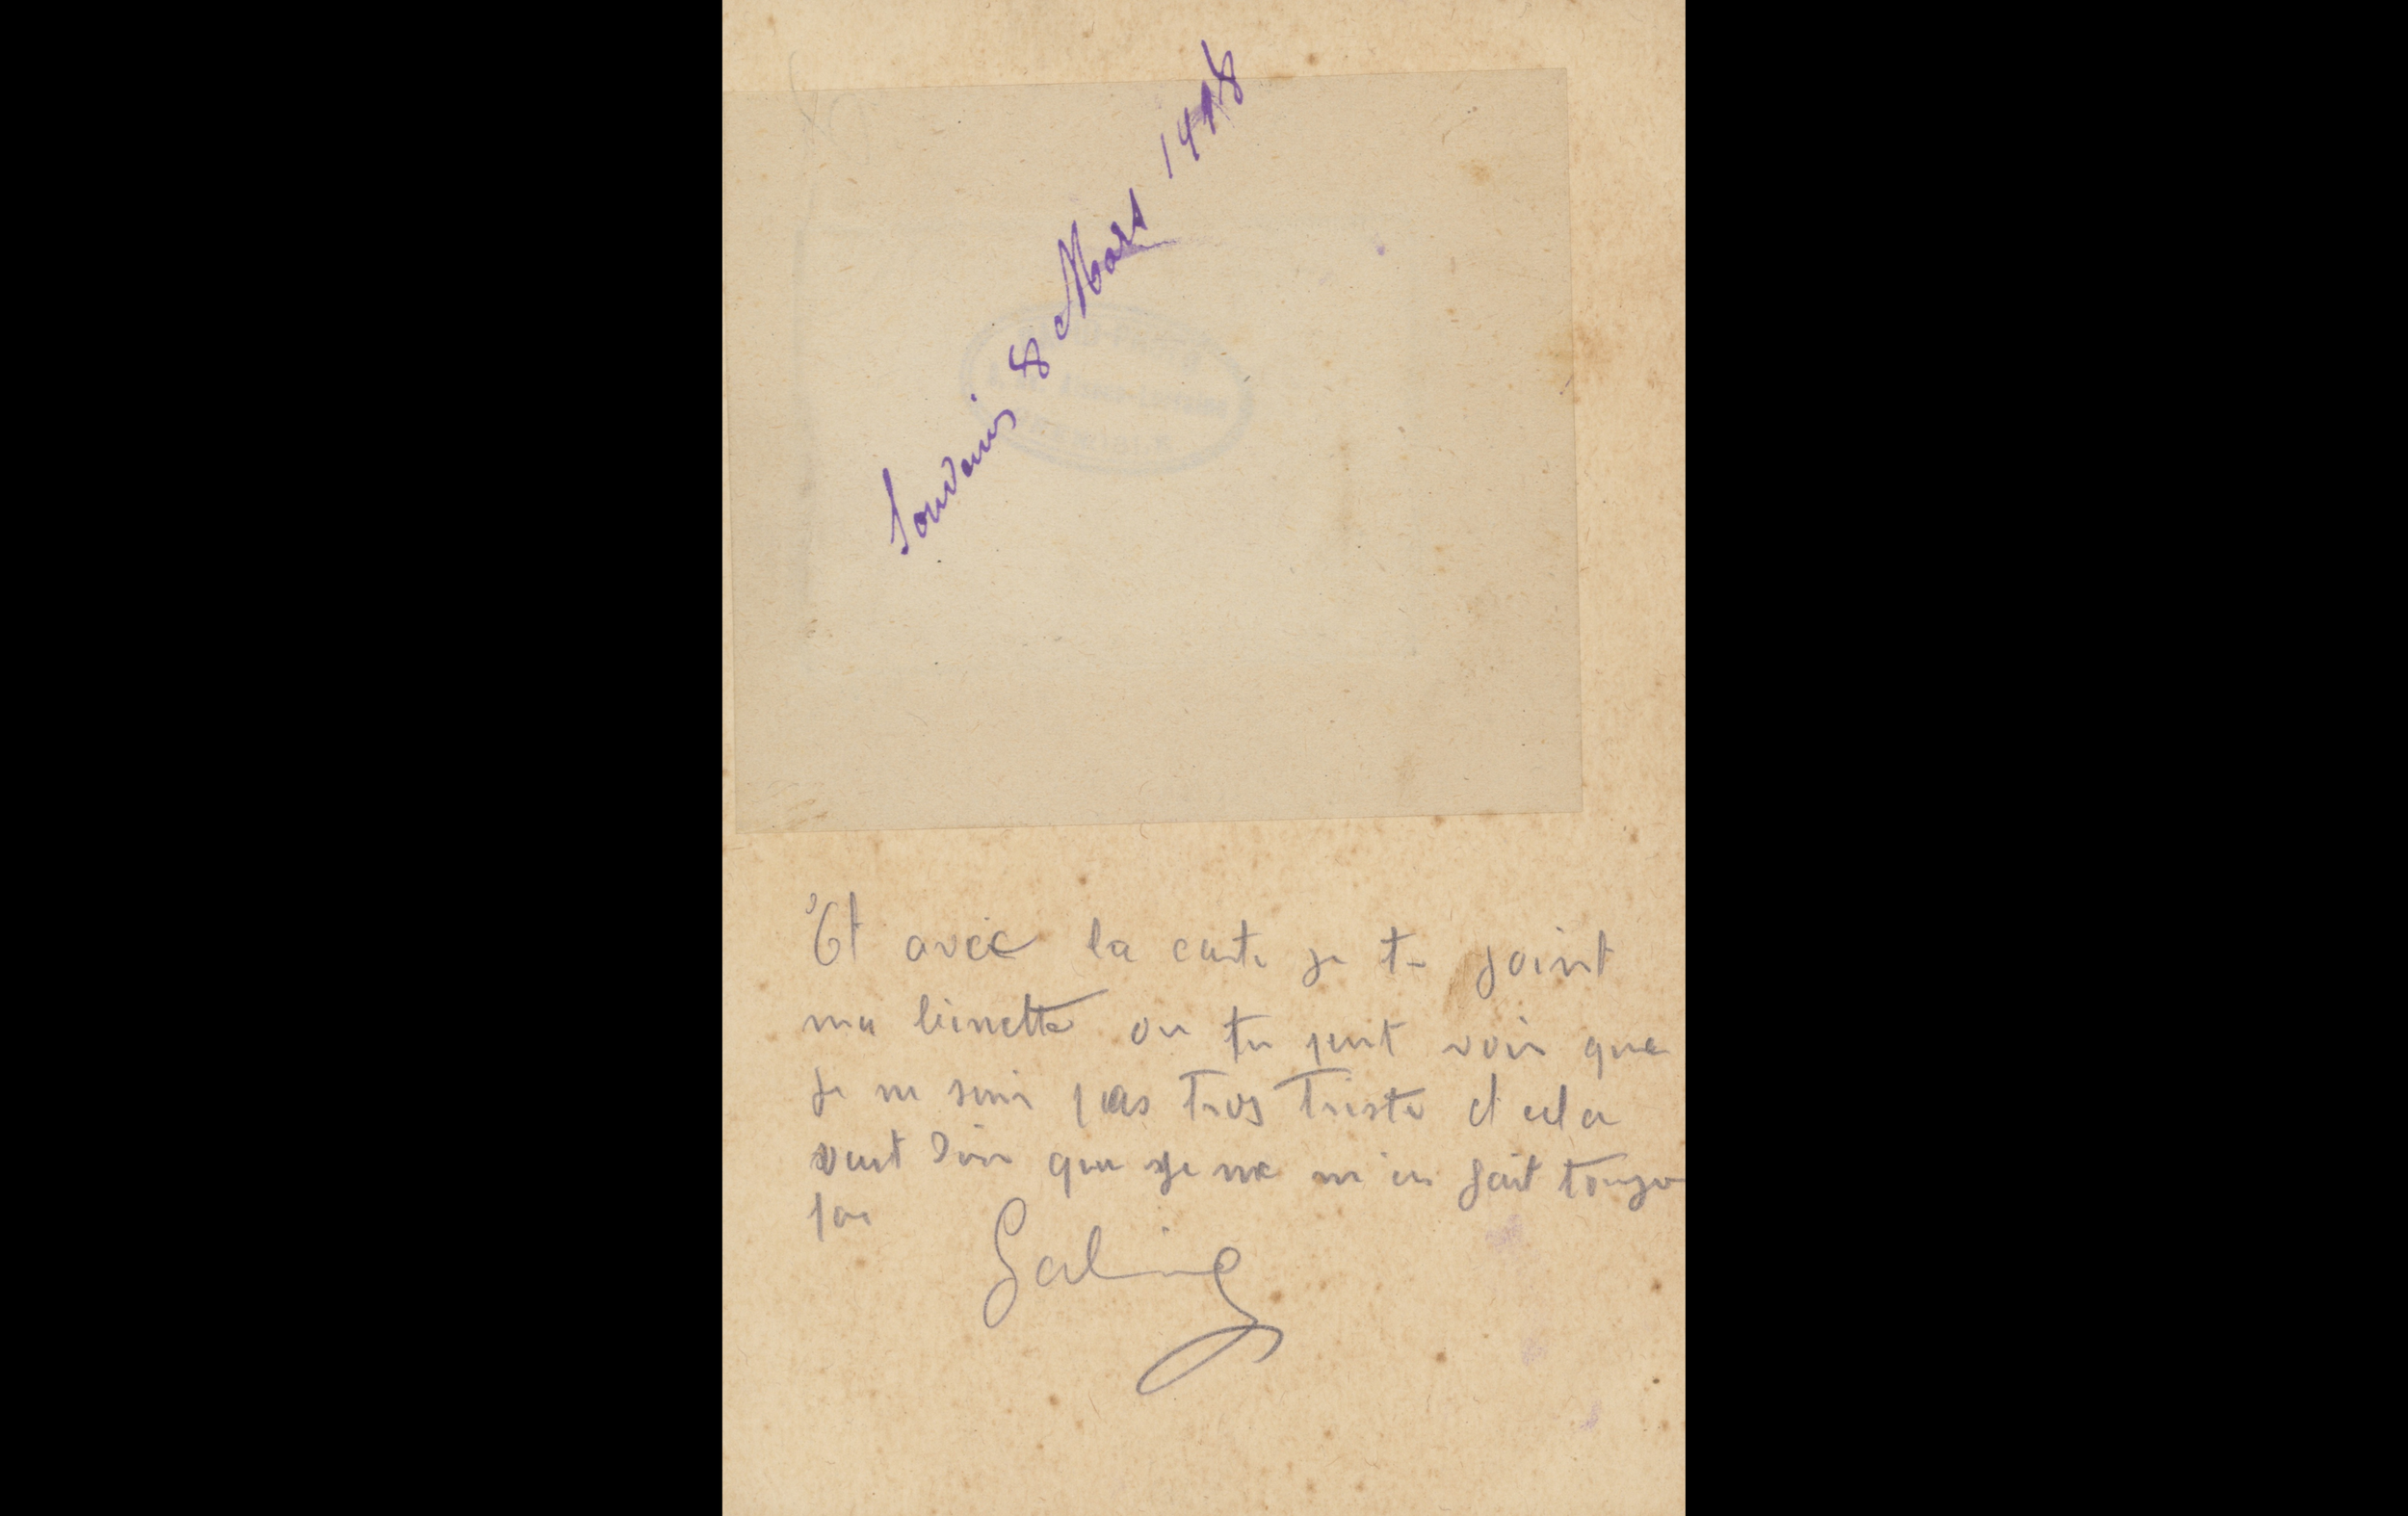 Souvenir 8 Mars 1918
Et avec la carte je te joint
ma binette ou tu peut voir que
je ne suis pas tros triste et cela
veut dire que je ne m'en fait toujou
pas